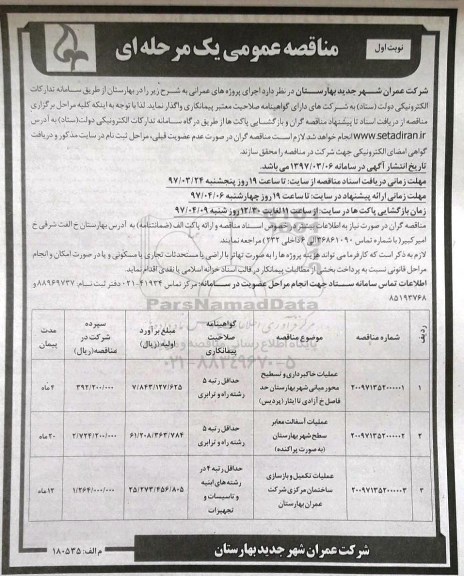 نوبت اول
مناقصه عمومی یک مرحله ای
شرکت عمران شهر جدید بهارستان در نظر دارد اجرای پروژه های عمرانی به شرح زیر را در بهارستان از طریق سامانه تدارکات
الکترونیکی دولت (ستاد) به شرکت های دارای گواهینامه صلاحیت معتبر پیمانکاری واگذار نماید. لذا با توجه به اینکه کلیه مراحل برگزاری
مناقصه از دریافت اسناد تا پیشنهاد مناقصه گران و بازگشایی پاکت ها از طریق درگاه سامانه تدارکات الکترونیکی دولت (ستاد) به آدرس
www.setadiran.ir انجام خواهد شد. لازم است مناقصه گران در صورت عدم عضویت قبلی، مراحل ثبت نام در سایت مذکور و دریافت
گواهی امضای الکترونیکی جهت شرکت در مناقصه را محقق سازند.
تاریخ انتشار آگهی در سامانه ۱۳۹۷/۰۳/۰۶ می باشد.
مهلت زمانی دریافت اسناد مناقصه از سایت: تا ساعت ۱۹ روز پنجشنبه ۹۷/۰۳/۲۴
مهلت زمانی ارائه پیشنهاد در سایت: تا ساعت ۱۹ روز چهارشنبه ۹۷/۰۴/۰۶
زمان بازگشایی پاکت ها در سایت: از ساعت ۱۱ لغایت ۱۲/۳۰ روز شنبه ۹۷/۰۴/۰۹
مناقصه گران در صورت نیاز به اطلاعات بیشتر در خصوص اسناد مناقصه و ارائه پاکت الف (ضمانتنامه) به آدرس بهارستان خ الفت شرقی خ
امیرکبیر (با شماره تماس ۳۶۸۶۱۰۹۰ الی ۶ داخلی ۲۳۲) مراجعه نمایند.
لازم به ذکر است که کارفرما می تواند هزینه پروژه ها را به صورت تهاتر با اراضی یا مستحدثات تجاری یا مسکونی و یا در صورت امکان و انجام
مراحل قانونی نسبت به پرداخت بخشی از مطالبات پیمانکار در قالب اسناد خزانه اسلامی یا نقدی اقدام نماید.
اطلاعات تماس سامانه ستاد جهت انجام مراحل عضویت در سامانه: مرکز تماس ۴۱۹۳۴-۰۲۱ دفتر ثبت نام: ۸۸۹۶۹۷۳۷ و
۸۵۱۹۳۷۶۸
ParsNamadData
۰۲۱-۸۸۳۴۹۶۷۰-۵
ردیف | شماره مناقصه | موضوع مناقصه | گواهینامه صلاحیت پیمانکاری | مبلغ برآورد اولیه (ریال) | سپرده شرکت در مناقصه (ریال) | مدت پیمان
۱ | ۲۰۰۹۷۱۳۵۲۰۰۰۰۰۱ | عملیات خاکبرداری و تسطیح محور میانی شهر بهارستان حد فاصل خ آزادی تا ایثار (پردیس) | حداقل رتبه ۵ رشته راه و ترابری | ۷/۸۴۳/۱۲۷/۶۲۵ | ۳۹۲/۲۰۰/۰۰۰ | ۴ ماه
۲ | ۲۰۰۹۷۱۳۵۲۰۰۰۰۰۲ | عملیات آسفالت معابر سطح شهر بهارستان (به صورت پراکنده) | حداقل رتبه ۵ رشته راه و ترابری | ۶۱/۲۰۸/۳۶۳/۷۸۴ | ۲/۷۲۴/۲۰۰/۰۰۰ | ۲۰ ماه
۳ | ۲۰۰۹۷۱۳۵۲۰۰۰۰۰۳ | عملیات تکمیل و بازسازی ساختمان مرکزی شرکت عمران بهارستان | حداقل رتبه ۴ در رشته های ابنیه و تاسیسات و تجهیزات | ۲۵/۲۷۳/۴۵۶/۸۰۵ | ۱/۲۶۴/۰۰۰/۰۰۰ | ۱۲ ماه
شرکت عمران شهر جدید بهارستان
م الف: ۱۸۰۵۳۵